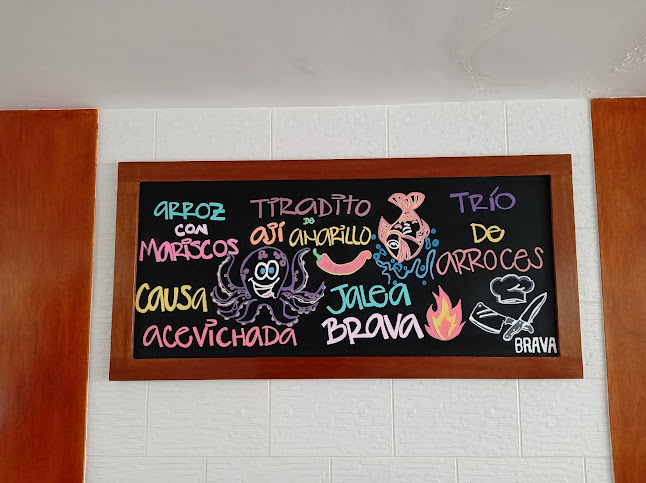 arroz
con
mariscos
Tiradito
de
ají amarillo
Trío
de
arroces
Causa
acevichada
Jalea
Brava
BRAVA